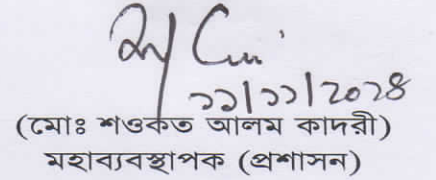 ১১/১১/২০২৪
(মোঃ শওকত আলম কাদরী)
মহাব্যবস্থাপক (প্রশাসন)